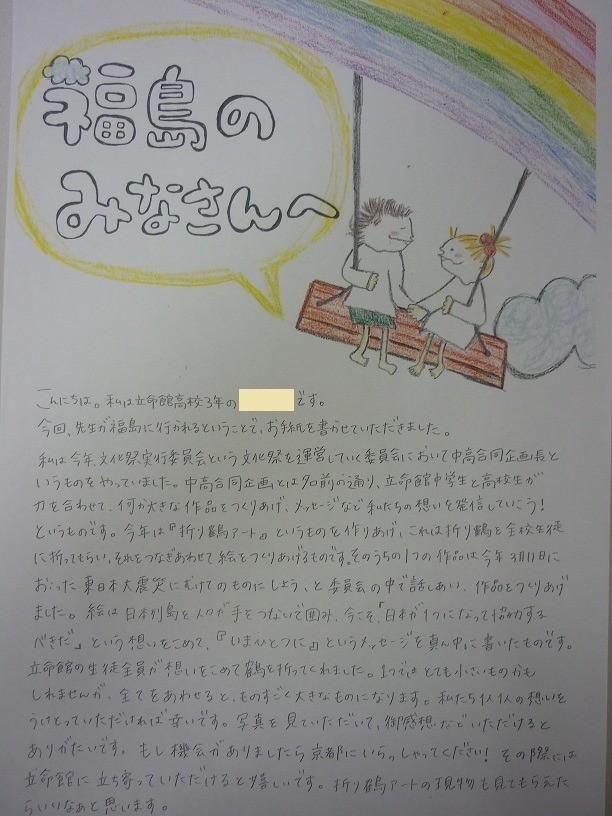 福島の
みなさんへ
こんにちは。私は立命館高校3年の です。
今回、先生が福島に行かれるということで、お手紙を書かせていただきました。
私は今年、文化祭実行委員会という文化祭を運営していく委員会において中高合同企画長と
いうものをやっていました。中高合同企画とは名前の通り、立命館中学生と高校生が
力を合わせて、何か大きな作品をつくりあげ、メッセージなど私たちの想いを発信していこう!
というものです。今年は『折り鶴アート』というものを作りあげ、これは折り鶴を全校生徒
に折ってもらい、それをつなぎあわせて絵をつくりあげるものです。そのうちの1つの作品は今年3月11日に
おこった東日本大震災にむけてのものにしよう、と委員会の中で話しあい、作品をつくりあげ
ました。絵は日本列島を人々が手をつないで囲み、今こそ「日本が1つになって協力する
べきだ」という想いをこめて、『いまひとつに』というメッセージを真ん中に書いたものです。
立命館の生徒全員が想いをこめて鶴を折ってくれました。1つではとても小さいものかも
しれませんが、全てをあわせると、ものすごく大きなものになります。私たち1人1人の想いを
うけとっていただければ幸いです。写真を見ていただいて、御感想などいただけると
ありがたいです。もし機会がありましたら京都にいらっしゃってください!その際には
立命館に立ち寄っていただけると嬉しいです。折り鶴アートの現物も見てもらえた
らいいなぁと思います。